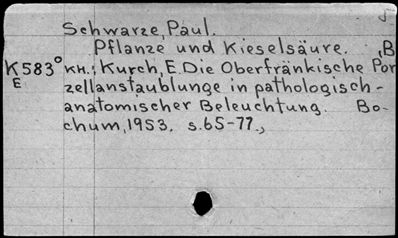 Schwarze, Paul.
Pflanze und Kieselsäure. ,B
K583° кн.; Kurch, E. Die Oberfränkische Por
E zellanstaublunge in pathologisch-
anatomischer Beleuchtung. Bo-
chum, 1953. s. 65-77.,